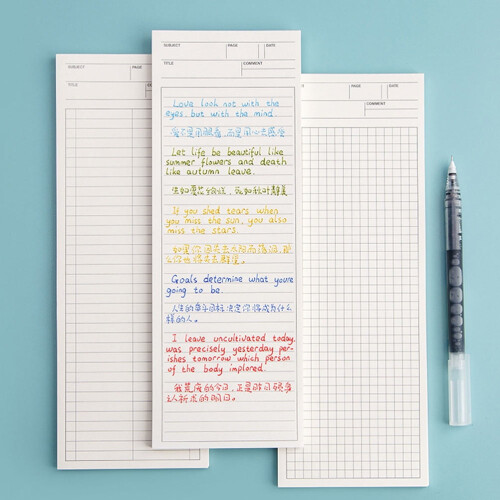 SUBJECT
PAGE
DATE
TITLE
COMMENT
SUBJECT PAGE DATE
TITLE COMMENT
Love look not with the
eyes, but with the mind.
爱不是用眼看,而是用心去感受
Let life be beautiful like
summer flowers and death
like autumn leave.
生如夏花绚烂,死如秋叶静美
If you shed tears when
you miss the sun, you also
miss the stars.
如果你因失去太阳而落泪,那
么你也将失去群星。
Goals determine what you're
going to be.
人生的奋斗目标决定你将成为什么
样的人。
I leave uncultivated today,
was precisely yesterday per-
ishes tomorrow which person
of the body implored.
我荒废的今日,正是昨日殒身
之人祈求的明日。
SUBJECT PAGE DATE
TITLE COMMENT